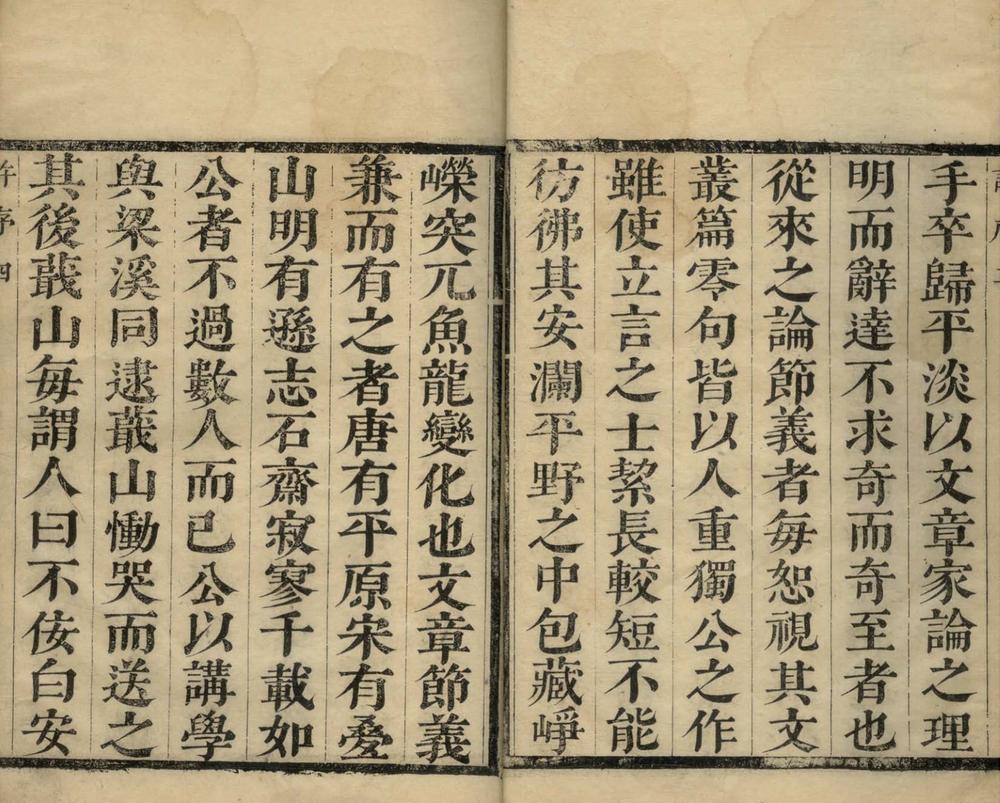 手卒歸平淡以文章家論之理
明而辭達不求奇而奇至者也
從來之論節義者每恕視其文
叢篇零句皆以人重獨公之作
雖使立言之士絜長較短不能
彷彿其安瀾平野之中包藏崢
嶸突兀魚龍變化也文章節義
兼而有之者唐有平原宋有疊
山明有遜志石齋寂寥千載如
公者不過數人而已公以講學
與梁溪同逮蕺山慟哭而送之
其後蕺山每謂人曰不侫白安
序 四